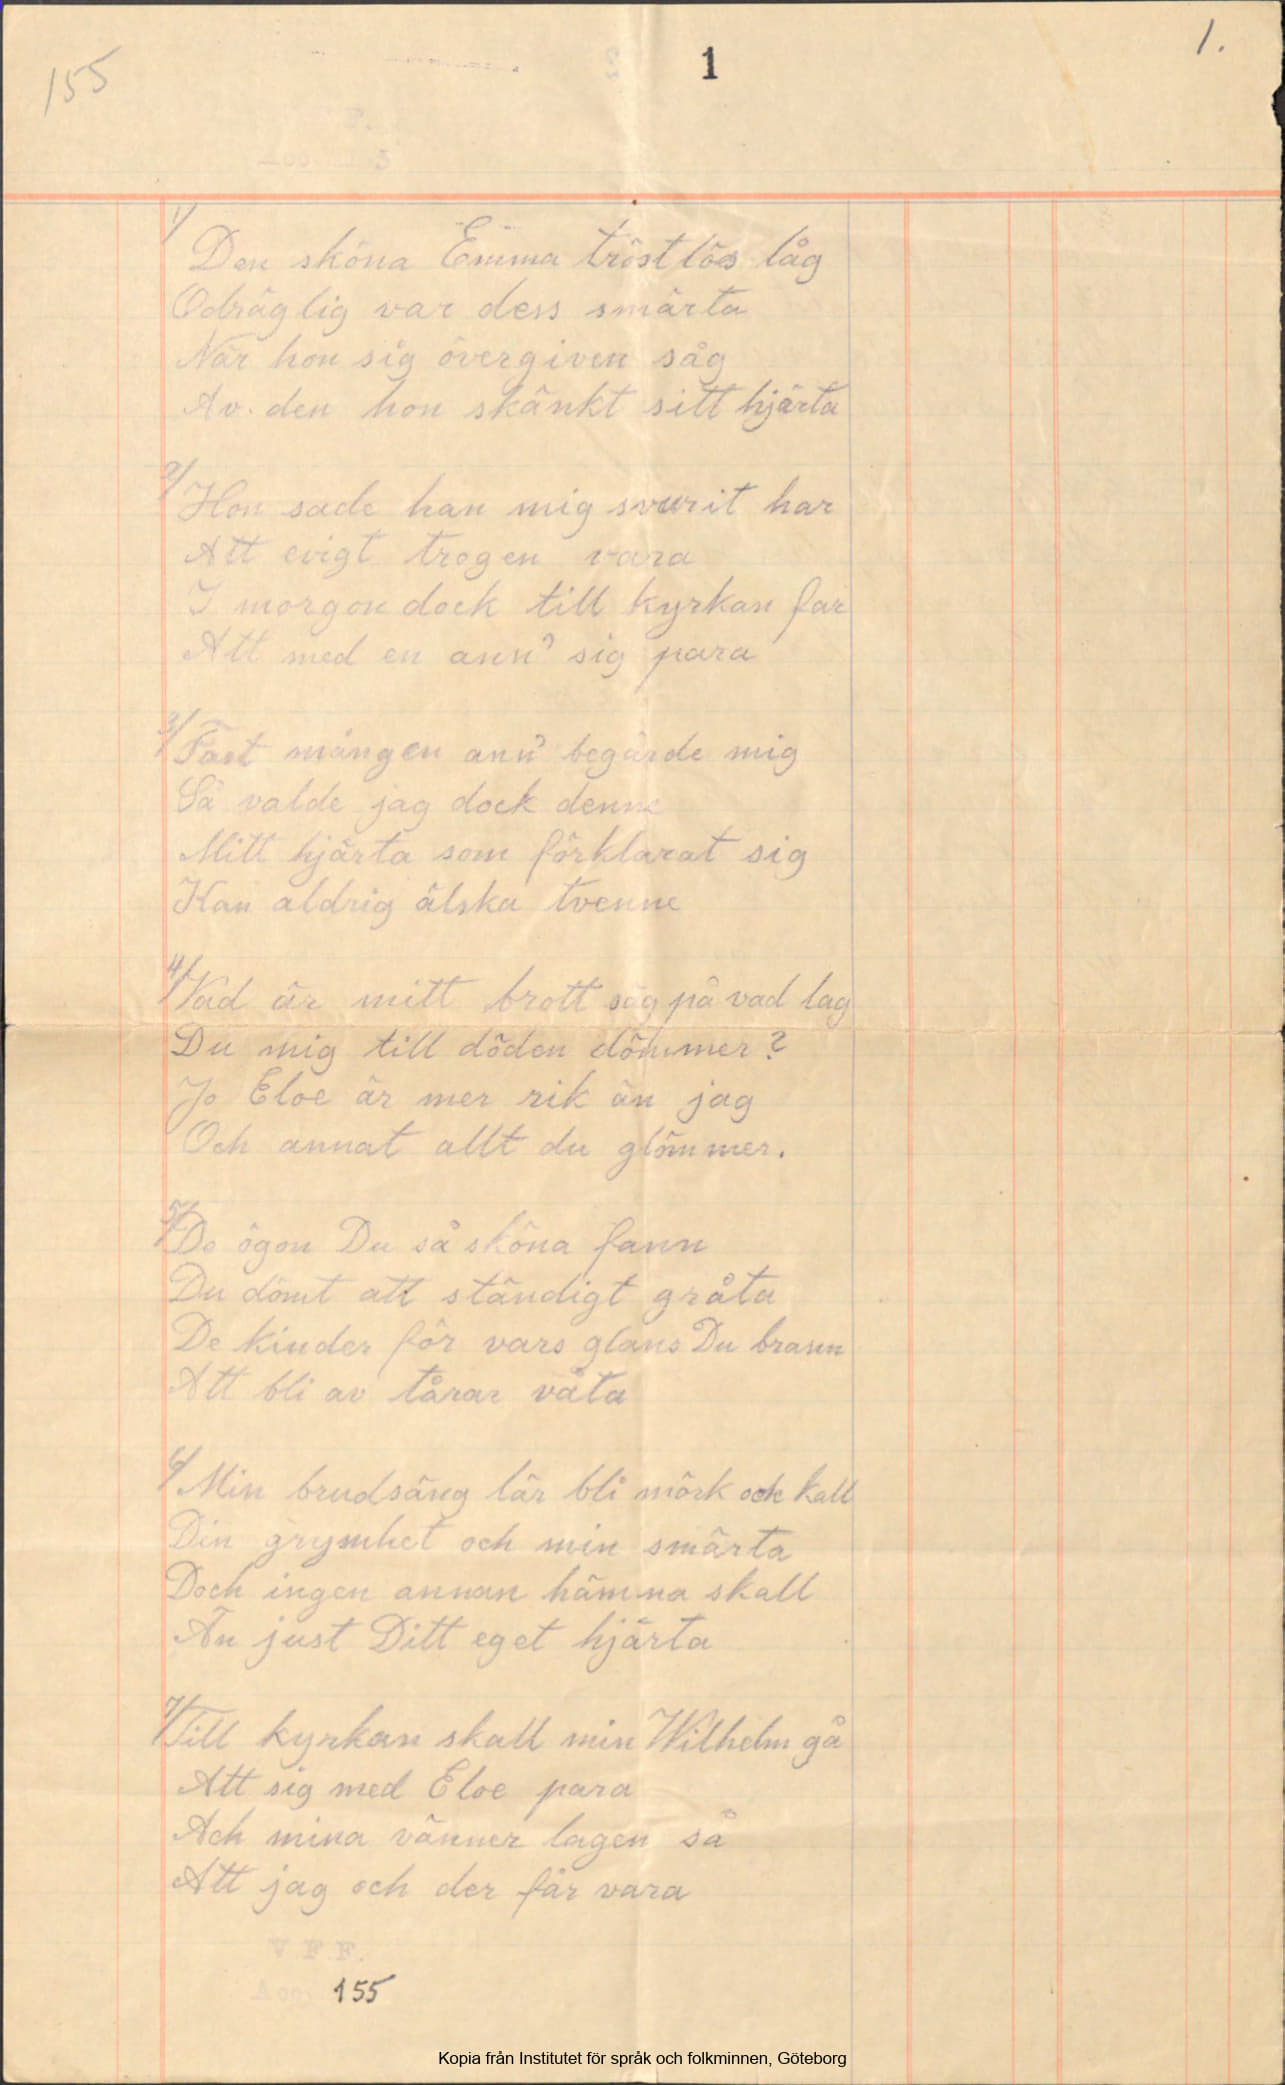 155
1
1.
1/
Den sköna Emma tröstlös låg
Odräglig var dess smärta
När hon sig övergiven såg
Av den hon skänkt sitt hjärta
2/
Hon sade han mig svurit har
Att evigt trogen vara
I morgon dock till kyrkan far
Att med en ann' sig para
3/
Fast mången ann' begärde mig
Så valde jag dock denne
Mitt hjärta som förklarat sig
Kan aldrig älska tvenne
4/
Vad är mitt brott säg på vad lag
Du mig till döden dömmer?
Jo Eloe är mer rik än jag
Och annat allt du glömmer.
5/
De ögon Du så sköna fann
Du dömt att ständigt gråta
De kinder för vars glans Du brann
Att bli av tårar våta
6/
Min brudsäng lär bli mörk och kall
Din grymhet och min smärta
Doch ingen annan hämna skall
Än just Ditt eget hjärta
7/
Till kyrkan skall min Wilhelm gå
Att sig med Eloe para
Ach mina vänner lagen så
Att jag och der får vara
V. F. F.
Acc. 155
Kopia från Institutet för språk och folkminnen, Göteborg